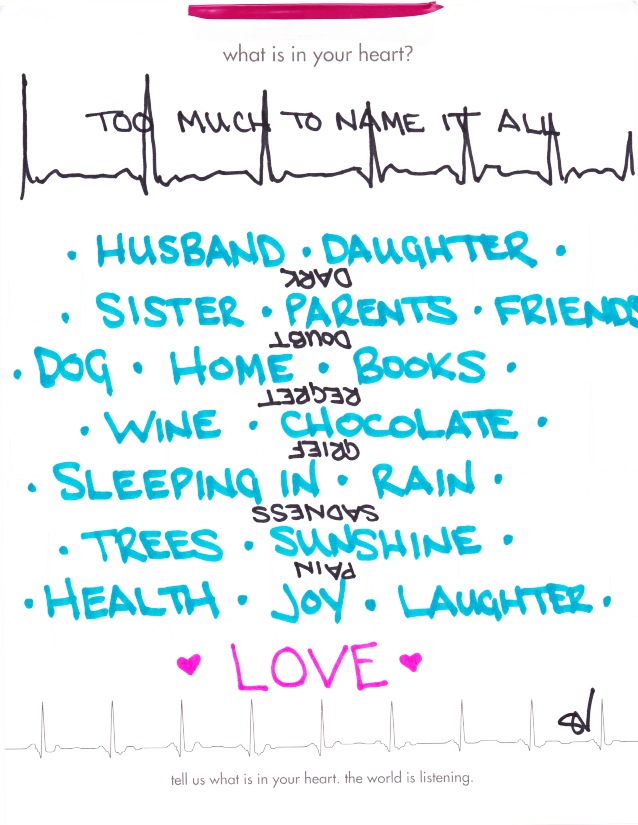 what is in your heart?
TOO MUCH TO NAME IT ALL
· HUSBAND · DAUGHTER ·
DARK
· SISTER · PARENTS · FRIENDS
DOUBT
· DOG · HOME · BOOKS ·
REGRET
· WINE · CHOCOLATE ·
GRIEF
· SLEEPING IN · RAIN ·
SADNESS
· TREES · SUNSHINE ·
PAIN
· HEALTH · JOY · LAUGHTER ·
♥ LOVE ♥
tell us what is in your heart. the world is listening.